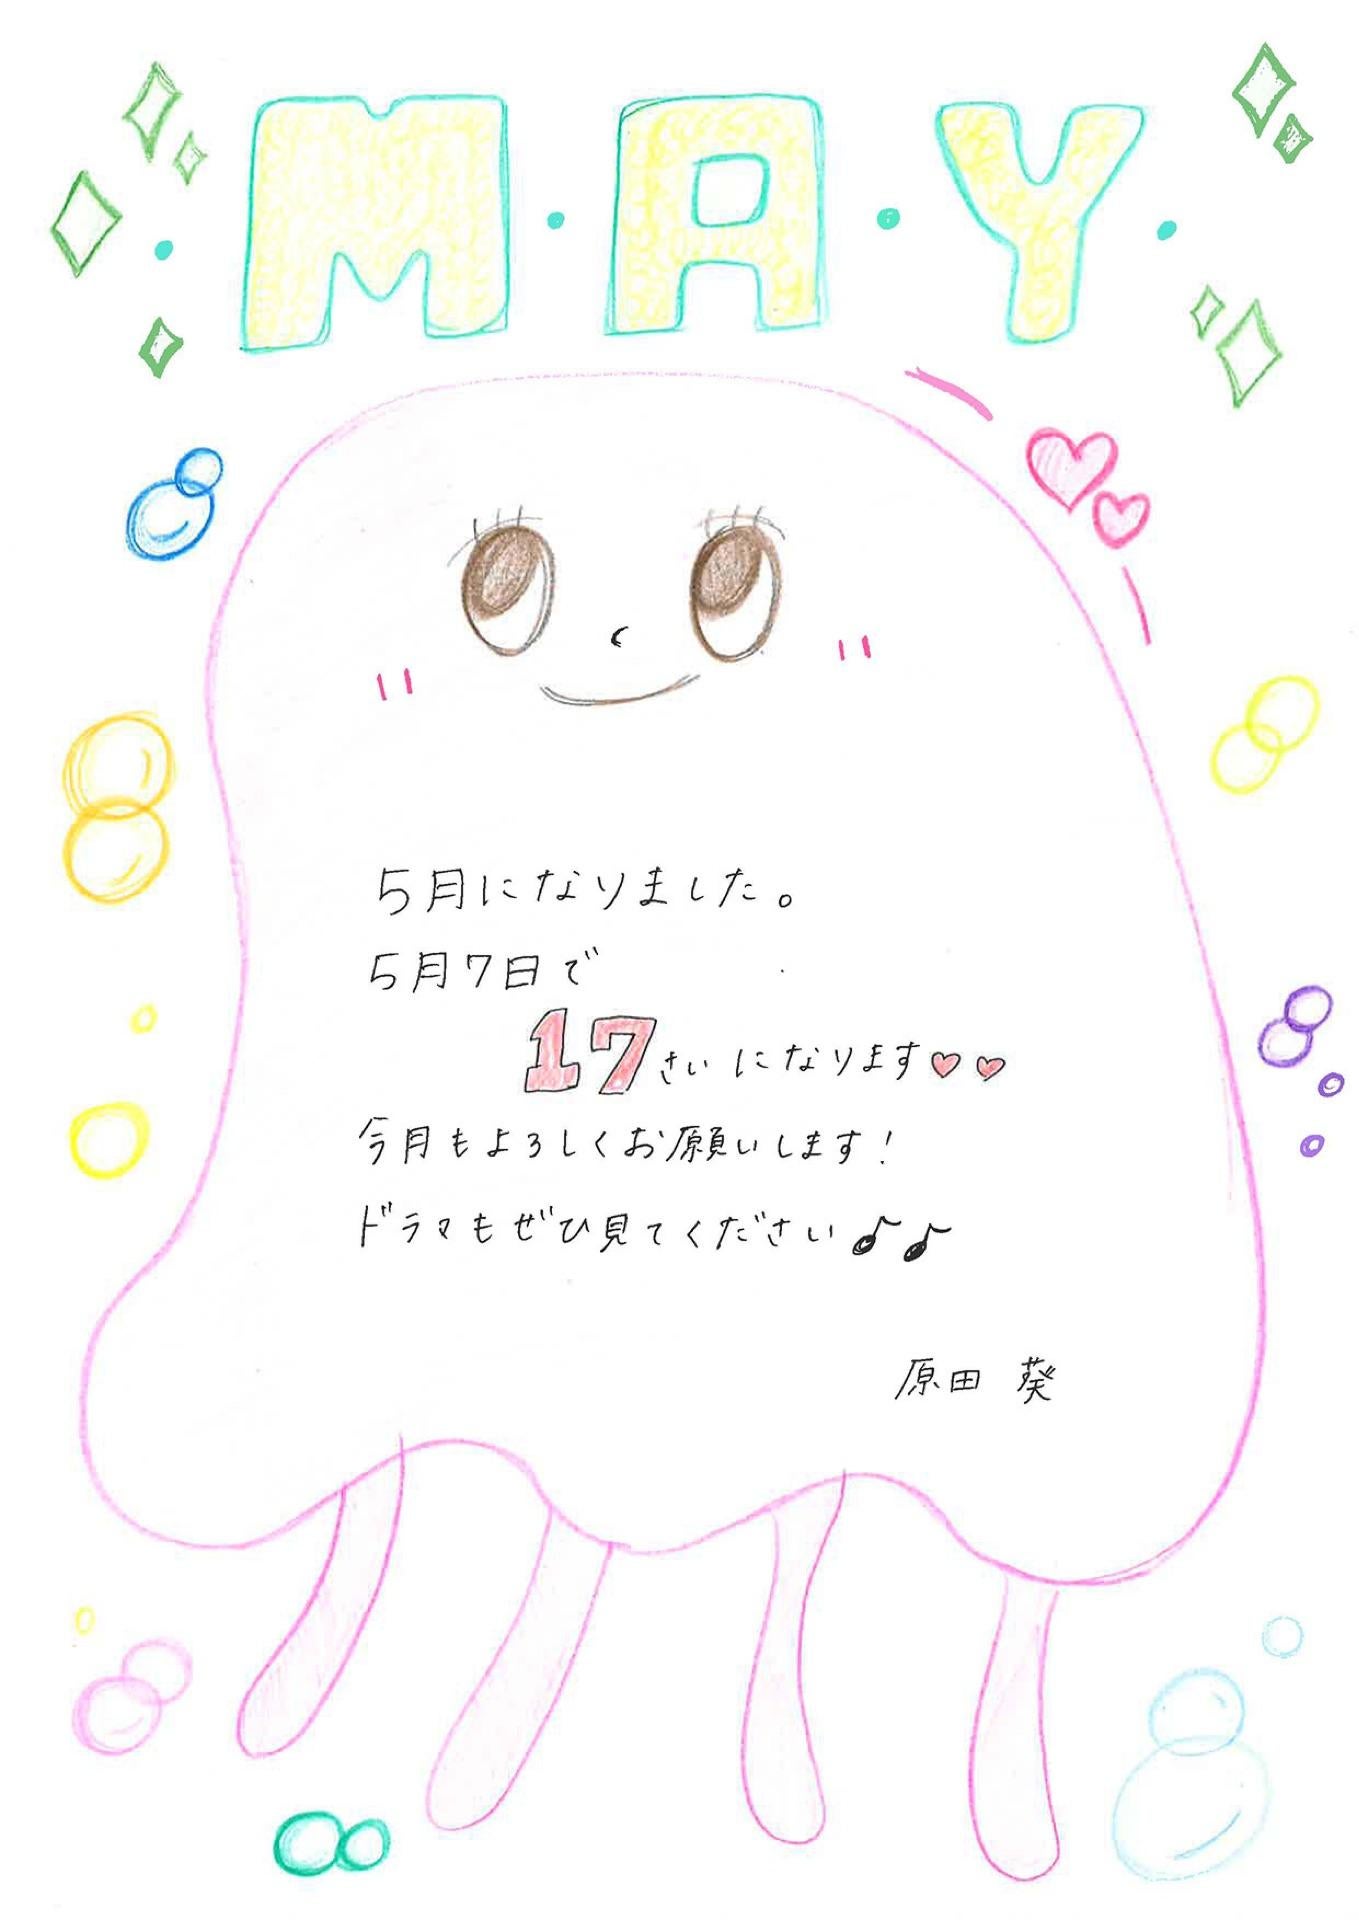 M・A・Y・
5月になりました。
5月7日で
17さいになります♥♥
今月もよろしくお願いします！
ドラマもぜひ見てください♪♪
原田 葵